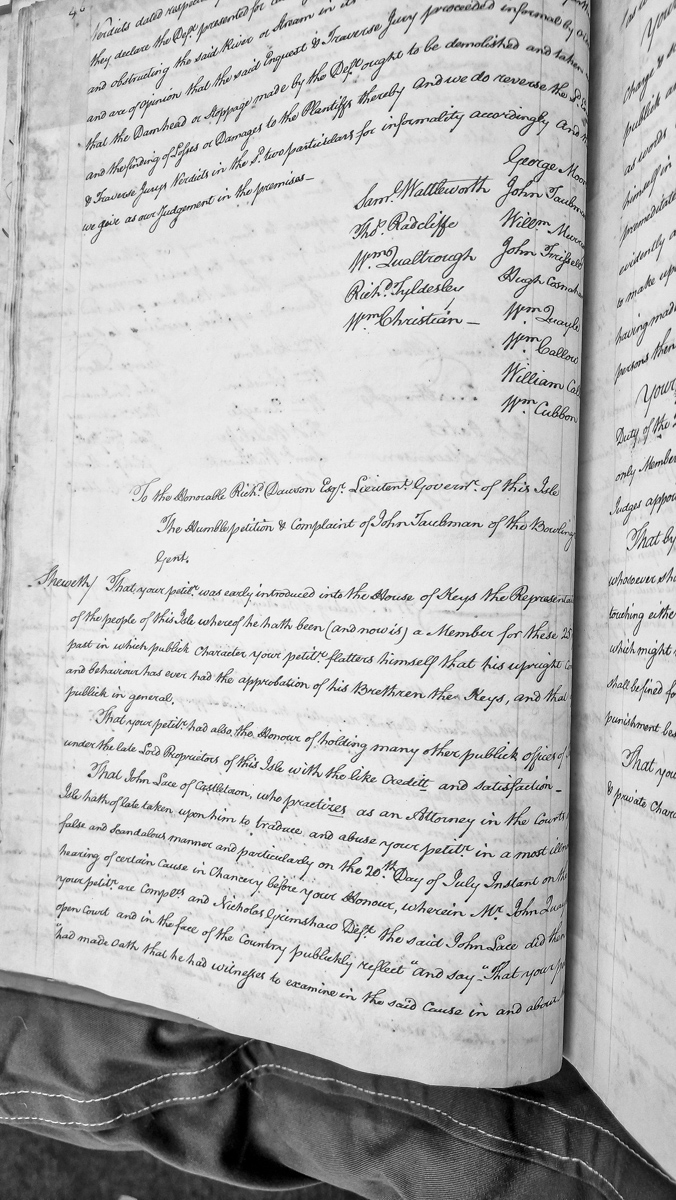 Verdicts dated
they declare the Defts. presented for
and obstructing the said River or Stream in
and are of opinion that the said Enquest & Traverse Jury proceeded informal by
that the Damhead or Stoppage made by the Defts. ought to be demolished and taken
and the finding of Losses or Damages to the Plantiffs thereby And we do reverse the Sd.
& Traverse Jurys Verdicts in the Sd. two particulars for informality accordingly And
we give as our Judgement in the premises—
George Moor
Saml. Wattleworth John Taubm
Thos. Radcliffe Willm Murr
Wm. Qualtrough John Frissel
Richd. Tyldesley Hugh Cosnah
Wm. Christian — Wm Quayle
Wm Callow
William Cal
Wm Cubbon
To the Honorable Richd. Dawson Esqr. Lieutent. Governr. of this Isle
The Humble petition & Complaint of John Taubman of the Bowling
Gent.
Sheweth/ That your petitr. was early introduced into the House of Keys the Representa
of the people of this Isle whereof he hath been (and now is) a Member for these 25
past in which publick Character your petitr. flatters himself that his upright
and behaviour has ever had the approbation of his Brethren the Keys, and that
publick in general.
That your petitr. had also the Honour of holding many other publick offices of
under the late Lord Proprietors of this Isle with the like Creditt and satisfaction—
That John Lace of Castletown, who practizes as an Attorney in the Courts
Isle hath of late taken upon him to traduce and abuse your petitr. in a most
false and Scandalous manner and particularly on the 20th Day of July Instant on the
hearing of certain Cause in Chancery before your Honour, wherein Mr. John Quay
your petitr. are Complts. and Nicholas Grimshaw Deft. the said John Lace did then
open Court and in the face of the Country publickly reflect "and say "That your
"had made Oath that he had witnesses to examine in the said Cause in and about
Your
Charge &
publick
as words
himself in
premeditate
evidently
to make up
having made
persons then
Your
Duty of the
only Member
Judges appoi
That by
whosoever sha
touching eithe
which might
shall be fined fo
punishment bes
That you
& private Char